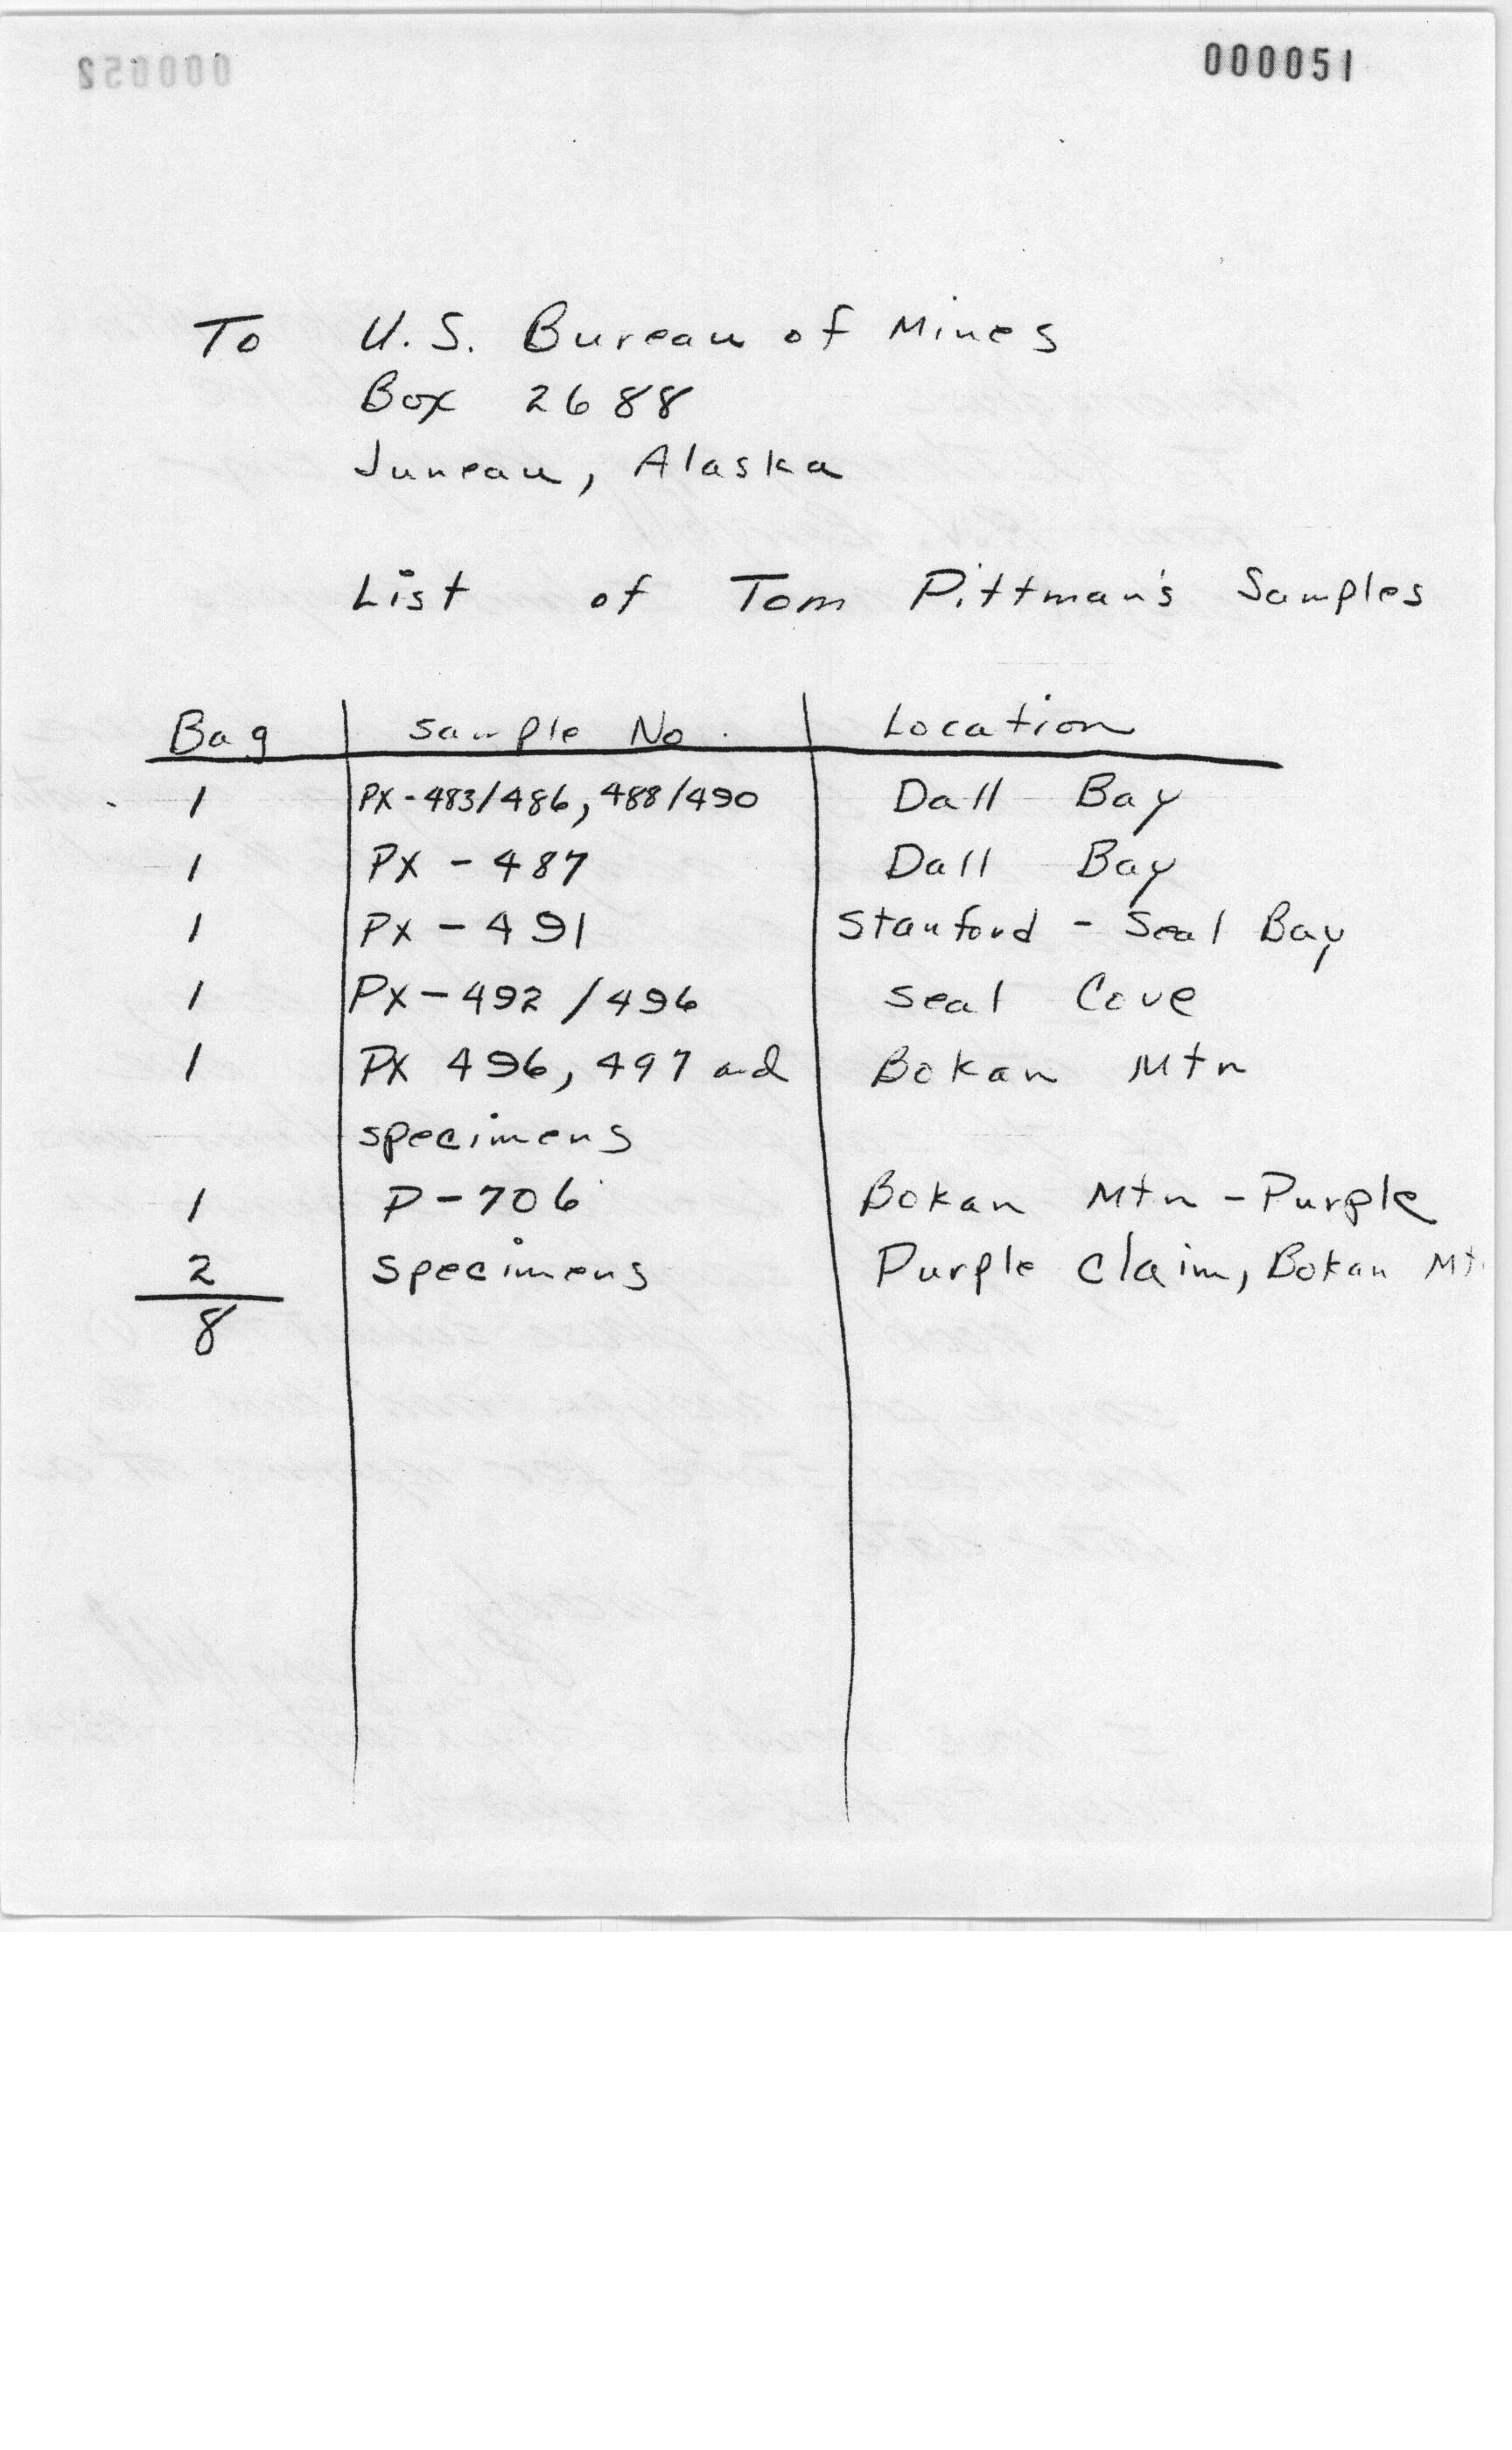 000052 000051
To U.S. Bureau of Mines
Box 2688
Juneau, Alaska
List of Tom Pittman's Samples
Bag Sample No. Location
1 PX-483/486, 488/490 Dall Bay
1 PX-487 Dall Bay
1 PX-491 Stanford - Seal Bay
1 PX-492/496 Seal Cove
1 PX 496, 497 and Bokan Mtn
specimens
1 P-706 Bokan Mtn - Purple
2 Specimens Purple Claim, Bokan Mt
8